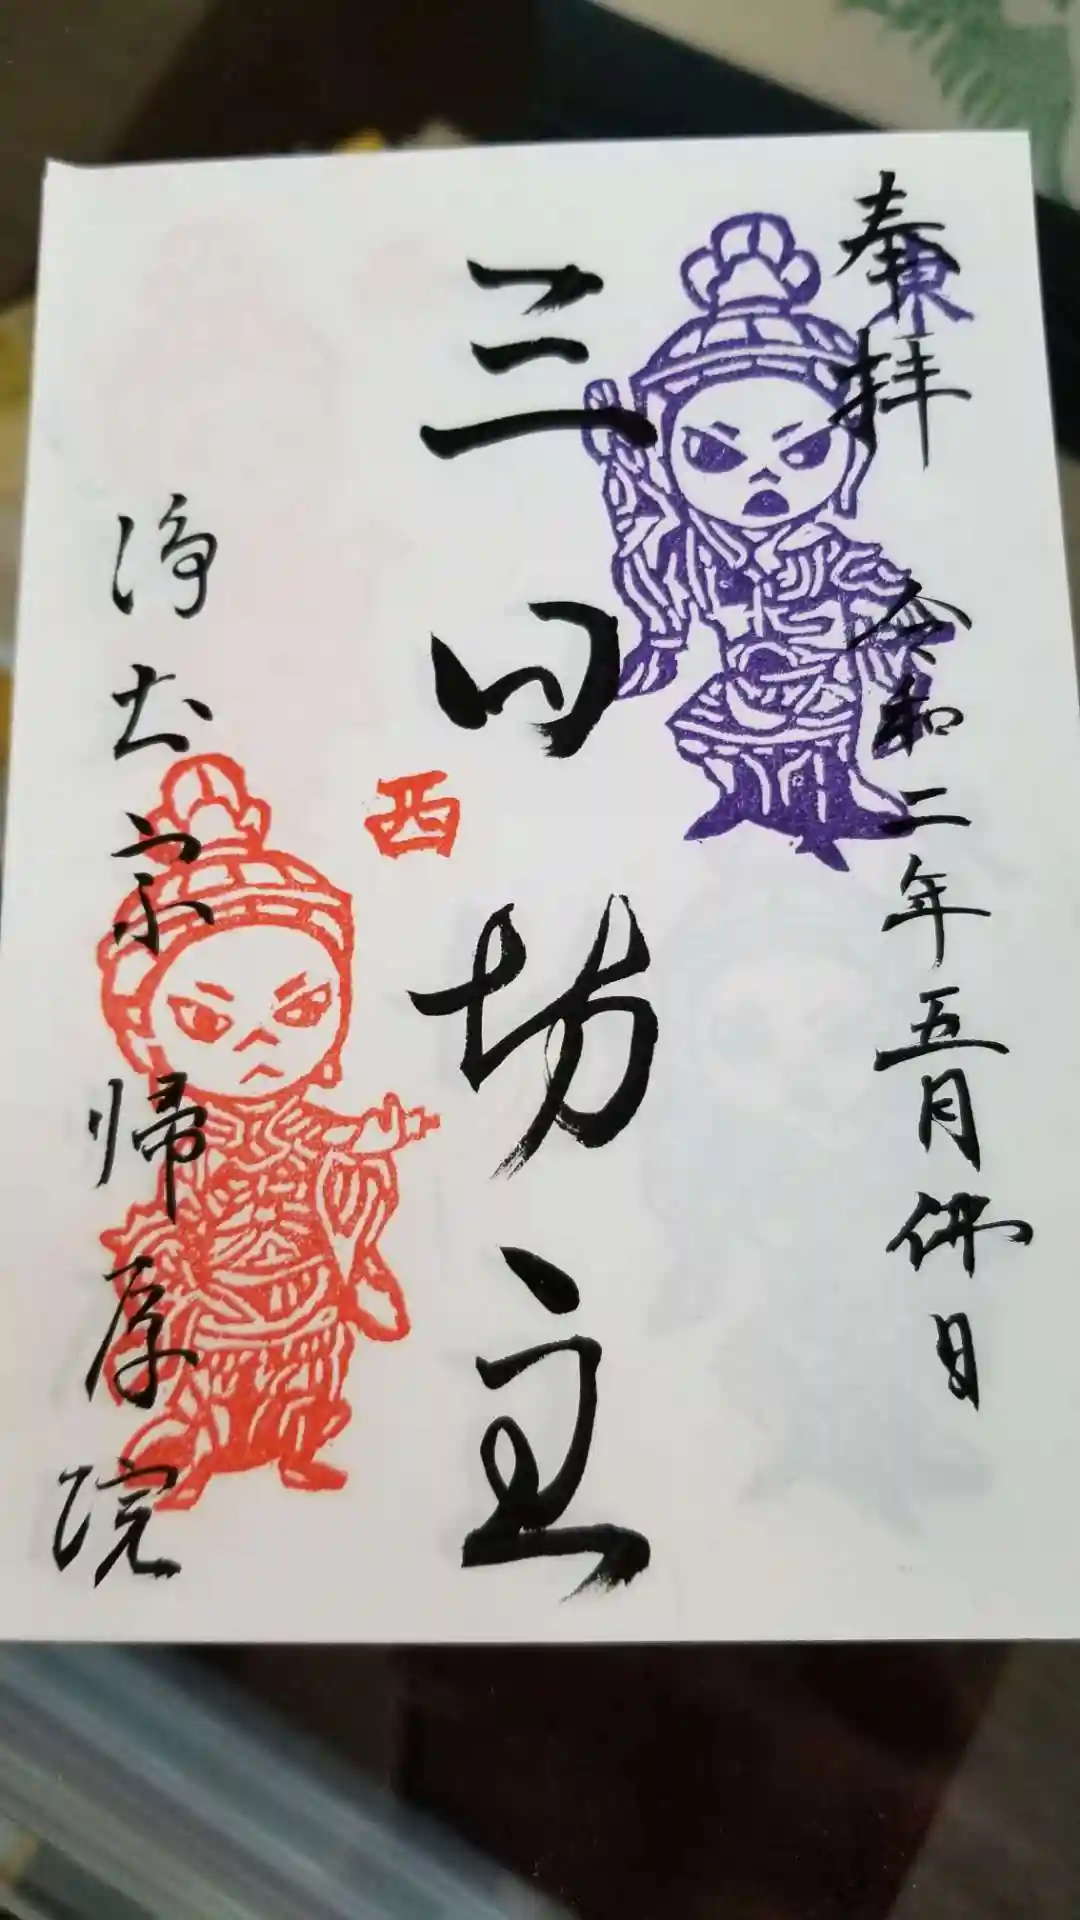 奉拝
東
令和二年五月佛日
三田坊主
西
浄土宗 帰原院